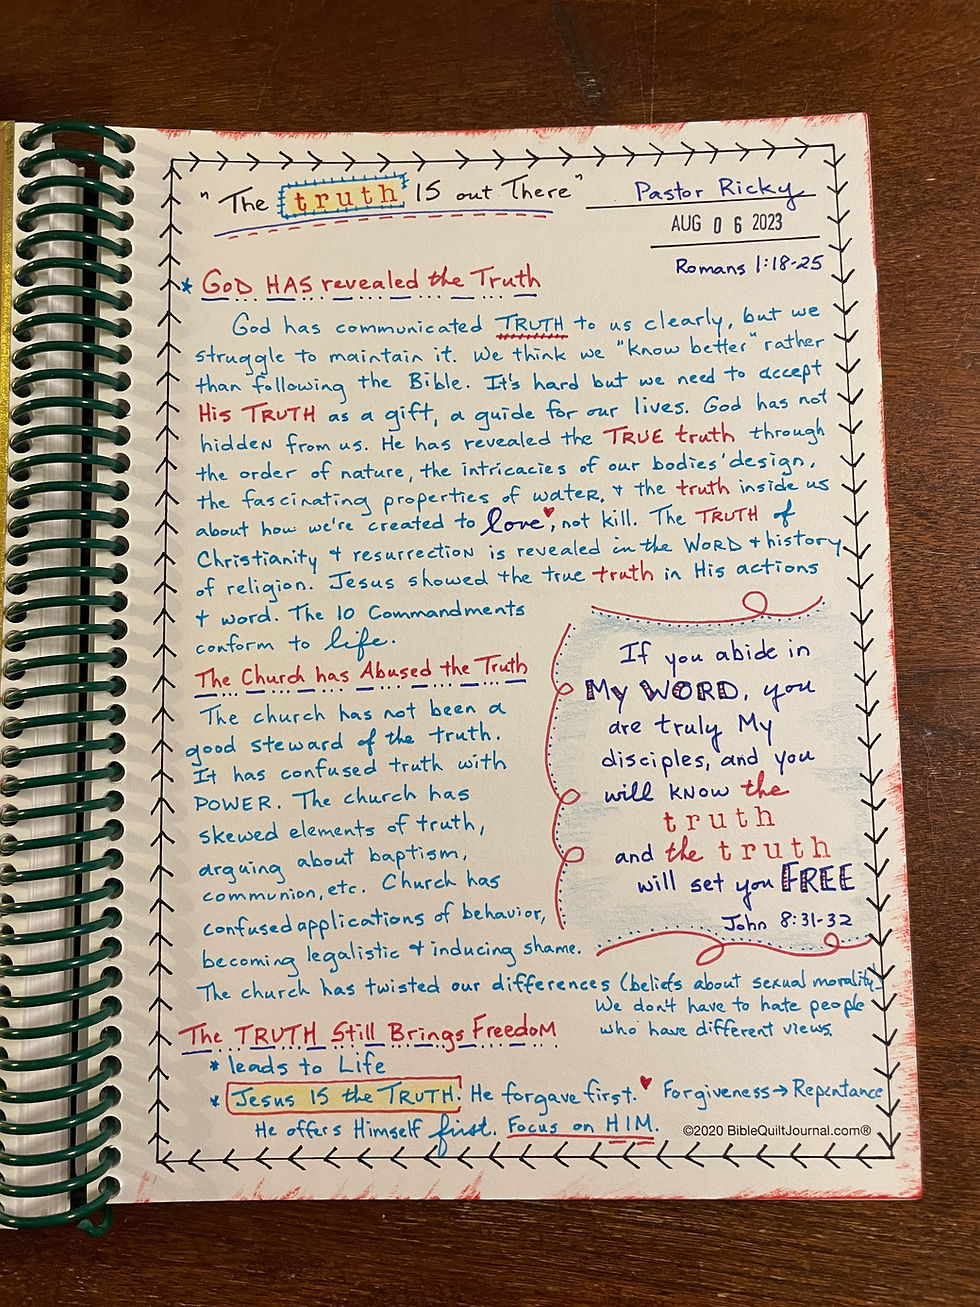 "The truth IS out There"
Pastor Ricky
AUG 06 2023
Romans 1:18-25
* GOD HAS revealed the Truth
God has communicated TRUTH to us clearly, but we
struggle to maintain it. We think we "know better" rather
than following the Bible. It's hard but we need to accept
His TRUTH as a gift, a guide for our lives. God has not
hidden from us. He has revealed the TRUE truth through
the order of nature, the intricacies of our bodies' design,
the fascinating properties of water, + the truth inside us
about how we're created to love♥, not kill. The TRUTH of
Christianity + resurrection is revealed in the WORD + history
of religion. Jesus showed the true truth in His actions
+ word. The 10 Commandments
conform to life.
The Church has Abused the Truth
The church has not been a
good steward of the truth.
It has confused truth with
POWER. The church has
skewed elements of truth,
arguing about baptism,
communion, etc. Church has
confused applications of behavior,
becoming legalistic + inducing shame.
The church has twisted our differences (beliefs about sexual morality)
We don't have to hate people
who have different views.
If you abide in
My WORD, you
are truly My
disciples, and you
will know the
truth
and the truth
will set you FREE
John 8:31-32
The TRUTH Still Brings Freedom
* leads to Life
* Jesus IS the TRUTH! He forgave first.♥ Forgiveness→Repentance
He offers Himself first. Focus on HIM.
©2020 BibleQuiltJournal.com®